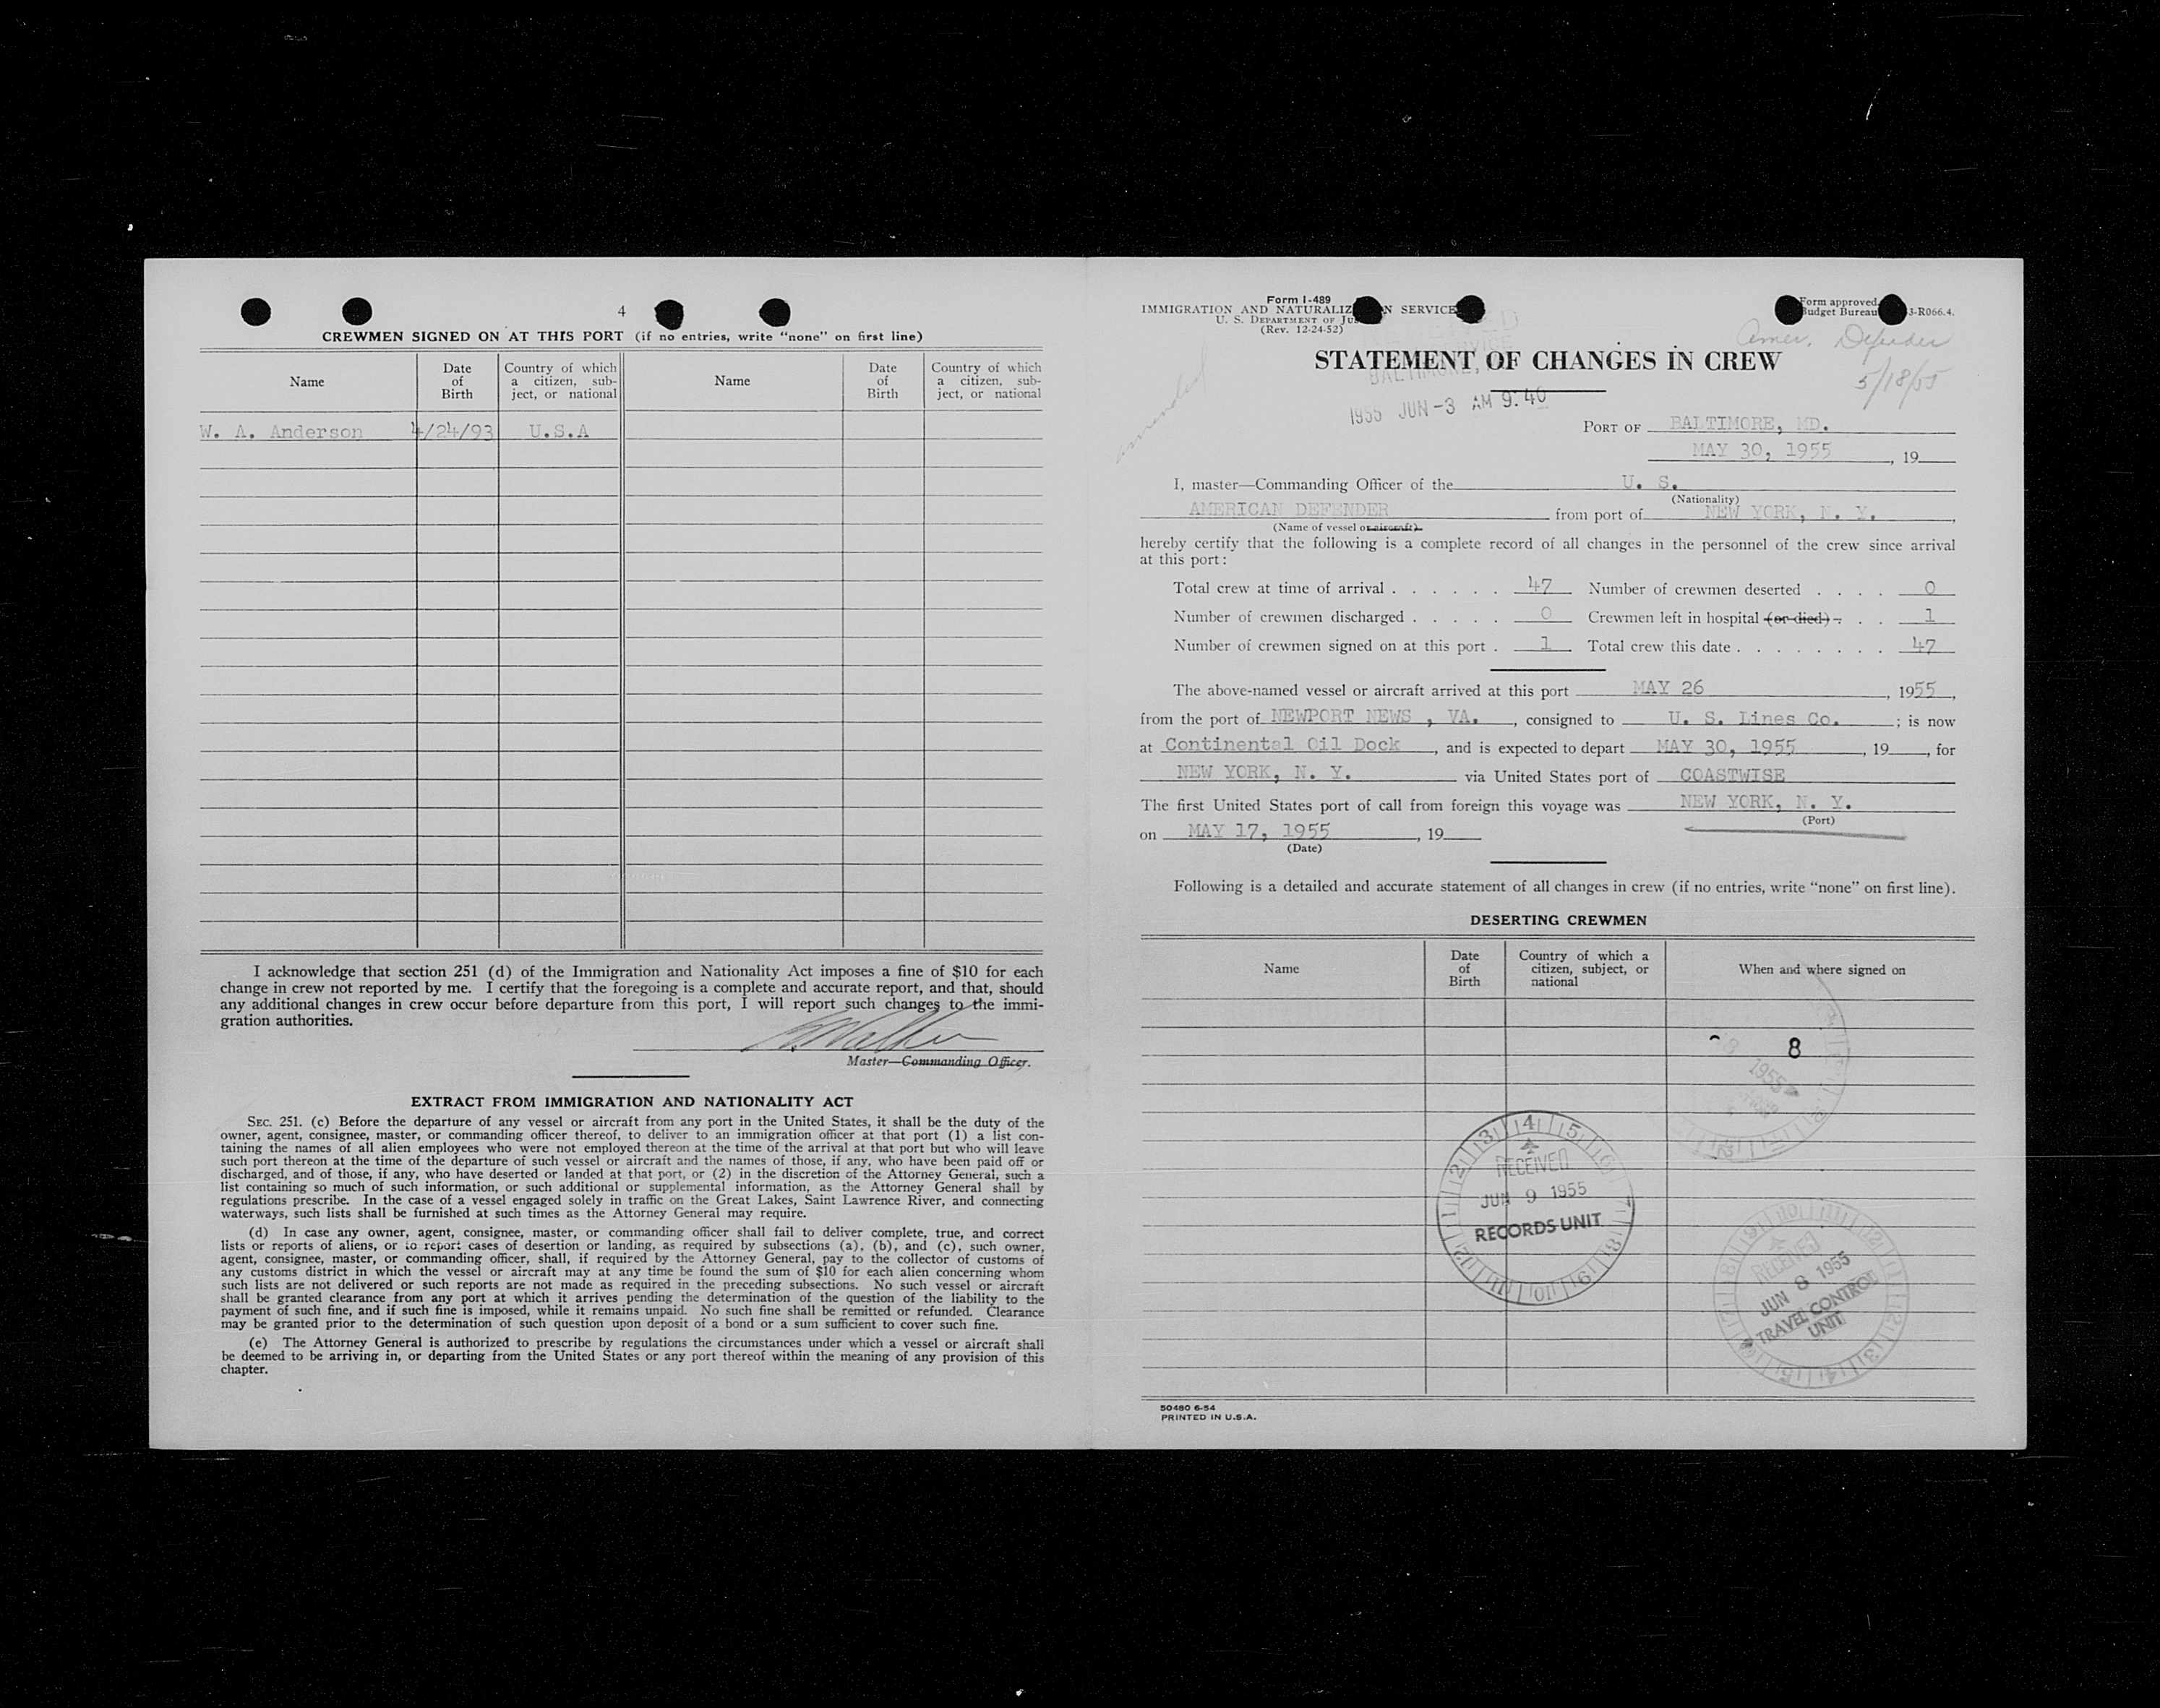 4
CREWMEN SIGNED ON AT THIS PORT (if no entries, write "none" on first line)
Name Date of Birth Country of which a citizen, sub-ject, or national Name Date of Birth Country of which a citizen, sub-ject, or national
W. A. Anderson 4/24/93 U.S.A
I acknowledge that section 251 (d) of the Immigration and Nationality Act imposes a fine of $10 for each
change in crew not reported by me. I certify that the foregoing is a complete and accurate report, and that, should
any additional changes in crew occur before departure from this port, I will report such changes to the immi-
gration authorities.
Master—Commanding Officer.
EXTRACT FROM IMMIGRATION AND NATIONALITY ACT
SEC. 251. (c) Before the departure of any vessel or aircraft from any port in the United States, it shall be the duty of the
owner, agent, consignee, master, or commanding officer thereof, to deliver to an immigration officer at that port (1) a list con-
taining the names of all alien employees who were not employed thereon at the time of the arrival at that port but who will leave
such port thereon at the time of the departure of such vessel or aircraft and the names of those, if any, who have been paid off or
discharged, and of those, if any, who have deserted or landed at that port, or (2) in the discretion of the Attorney General, such a
list containing so much of such information, or such additional or supplemental information, as the Attorney General shall by
regulations prescribe. In the case of a vessel engaged solely in traffic on the Great Lakes, Saint Lawrence River, and connecting
waterways, such lists shall be furnished at such times as the Attorney General may require.
(d) In case any owner, agent, consignee, master, or commanding officer shall fail to deliver complete, true, and correct
lists or reports of aliens, or to report cases of desertion or landing, as required by subsections (a), (b), and (c), such owner,
agent, consignee, master, or commanding officer, shall, if required by the Attorney General, pay to the collector of customs of
any customs district in which the vessel or aircraft may at any time be found the sum of $10 for each alien concerning whom
such lists are not delivered or such reports are not made as required in the preceding subsections. No such vessel or aircraft
shall be granted clearance from any port at which it arrives pending the determination of the question of the liability to the
payment of such fine, and if such fine is imposed, while it remains unpaid. No such fine shall be remitted or refunded. Clearance
may be granted prior to the determination of such question upon deposit of a bond or a sum sufficient to cover such fine.
(e) The Attorney General is authorized to prescribe by regulations the circumstances under which a vessel or aircraft shall
be deemed to be arriving in, or departing from the United States or any port thereof within the meaning of any provision of this
chapter.
Form I-489
IMMIGRATION AND NATURALIZ N SERVICE
U. S. DEPARTMENT OF JU
(Rev. 12-24-52)
Form approved.
Budget Bureau 3-R066.4.
Amer. Defender
5/18/55
STATEMENT OF CHANGES IN CREW
BALTIMORE,
1955 JUN -3 AM 9:40
PORT OF BALTIMORE, MD.
MAY 30, 1955, 19
I, master—Commanding Officer of the U. S.
(Nationality)
AMERICAN DEFENDER from port of NEW YORK, N. Y.,
(Name of vessel or aircraft)
hereby certify that the following is a complete record of all changes in the personnel of the crew since arrival
at this port:
Total crew at time of arrival . . . . . . 47 Number of crewmen deserted . . . . 0
Number of crewmen discharged . . . . . 0 Crewmen left in hospital (or died) . . . 1
Number of crewmen signed on at this port . 1 Total crew this date . . . . . . . . 47
The above-named vessel or aircraft arrived at this port MAY 26, 1955,
from the port of NEWPORT NEWS , VA., consigned to U. S. Lines Co.; is now
at Continental Oil Dock, and is expected to depart MAY 30, 1955, 19, for
NEW YORK, N. Y. via United States port of COASTWISE
The first United States port of call from foreign this voyage was NEW YORK, N. Y.
(Port)
on MAY 17, 1955, 19
(Date)
Following is a detailed and accurate statement of all changes in crew (if no entries, write "none" on first line).
DESERTING CREWMEN
Name Date of Birth Country of which a citizen, subject, or national When and where signed on
8
8 1955
RECEIVED
JUN 9 1955
RECORDS UNIT
RECEIVED
JUN 8 1955
TRAVEL CONTROL
UNIT
50480 6-54
PRINTED IN U.S.A.